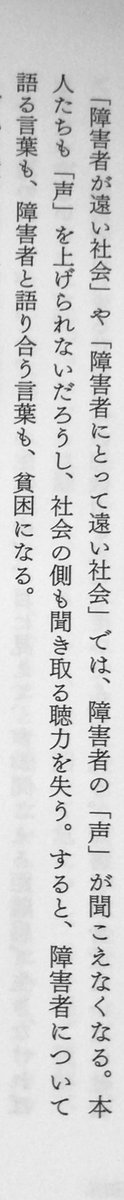 「障害者が遠い社会」や「障害者にとって遠い社会」では、障害者の「声」が聞こえなくなる。本
人たちも「声」を上げられないだろうし、社会の側も聞き取る聴力を失う。すると、障害者について
語る言葉も、障害者と語り合う言葉も、貧困になる。